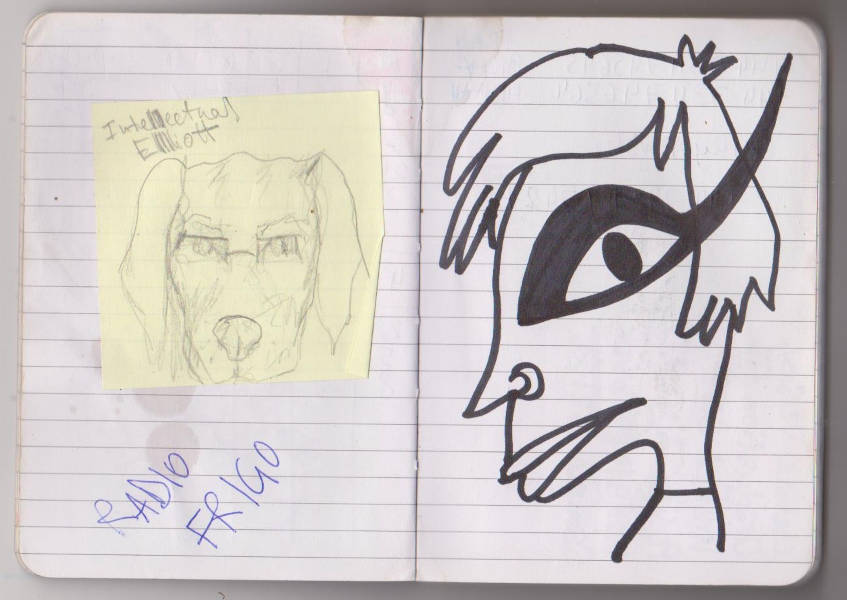 Intellectual
Elliott
RADIO
FRIGO